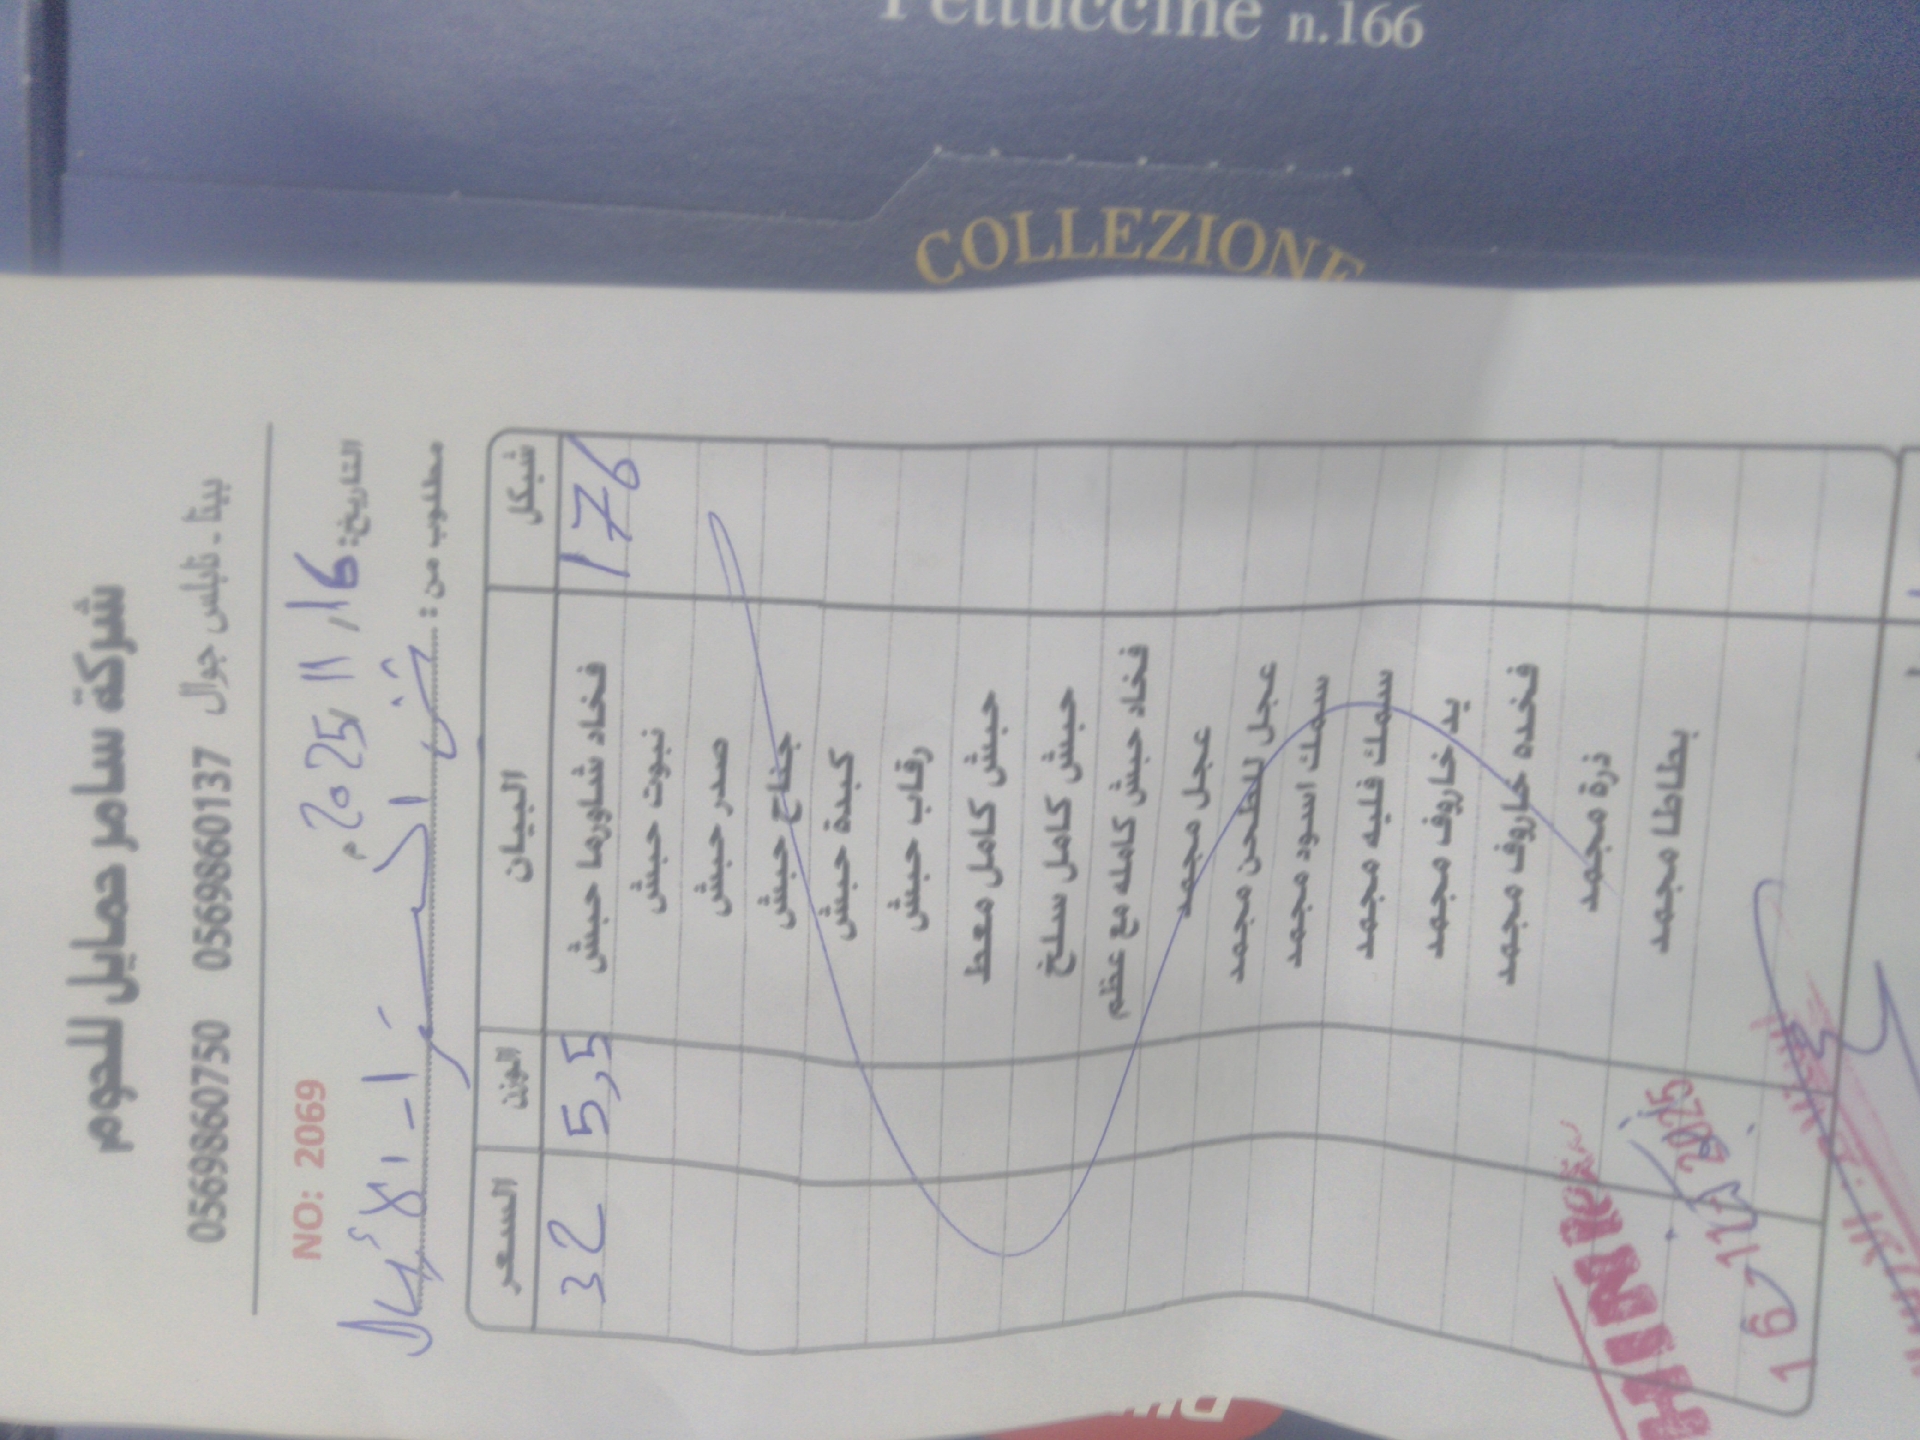 Fettuccine n.166
COLLEZIONE
شركة سامر حمايل للحوم
بيتا - نابلس جوال 0569860137 0569860750
التاريخ: 16 / 11 / 2025 م
NO: 2069
مطلوب من :
شيكل البيان الوزن السعر
176 فخاد شاورما حبش 5,5 32
نبوت حبش
صدر حبش
جناح حبش
كبدة حبش
رقاب حبش
حبش كامل معط
حبش كامل سلخ
فخاد حبش كامله مع عظم
عجل مجمد
عجل للطحن مجمد
سمك اسود مجمد
سمك فليه مجمد
يد خاروف مجمد
فخده خاروف مجمد
ذرة مجمد
بطاطا مجمد
16 -11- 2025